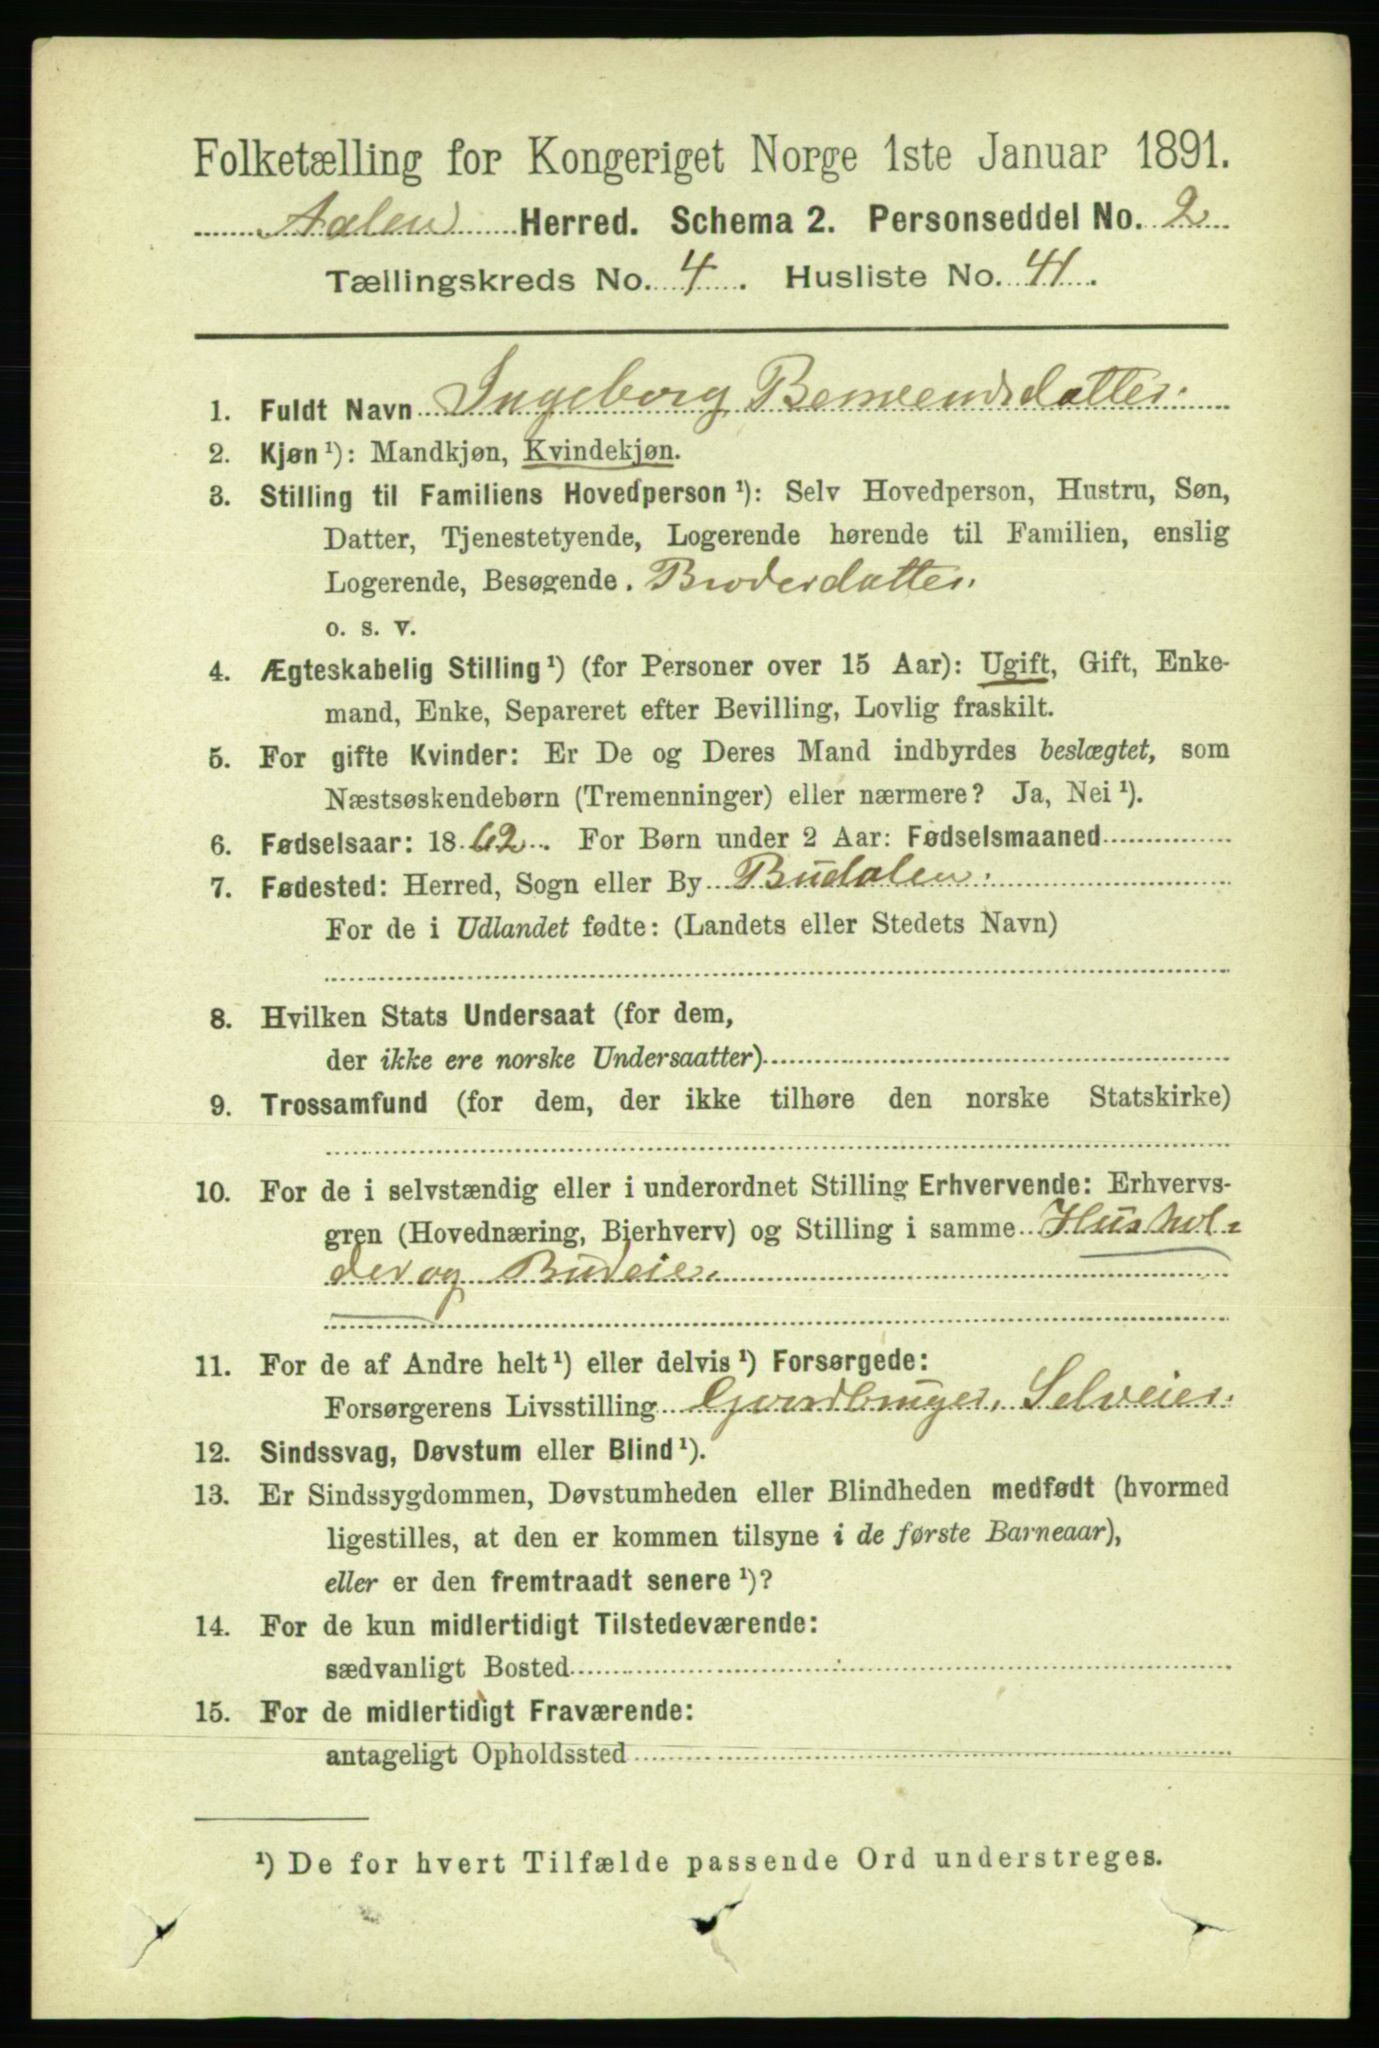 Folketælling for Kongeriget Norge 1ste Januar 1891.
Aalen Herred. Schema 2. Personseddel No. 2
Tællingskreds No. 4. Husliste No. 41.
1. Fuldt Navn Ingeborg
2. Kjøn ¹): Mandkjøn, Kvindekjøn.
3. Stilling til Familiens Hovedperson ¹): Selv Hovedperson, Hustru, Søn,
Datter, Tjenestetyende, Logerende hørende til Familien, enslig
Logerende, Besøgende. Broderdatter.
o. s. v.
4. Ægteskabelig Stilling ¹) (for Personer over 15 Aar): Ugift, Gift, Enke-
mand, Enke, Separeret efter Bevilling, Lovlig fraskilt.
5. For gifte Kvinder: Er De og Deres Mand indbyrdes beslægtet, som
Næstsøskendebørn (Tremenninger) eller nærmere? Ja, Nei ¹).
6. Fødselsaar: 1862. For Børn under 2 Aar: Fødselsmaaned
7. Fødested: Herred, Sogn eller By Budalen.
For de i Udlandet fødte: (Landets eller Stedets Navn)
8. Hvilken Stats Undersaat (for dem,
der ikke ere norske Undersaatter)
9. Trossamfund (for dem, der ikke tilhøre den norske Statskirke)
10. For de i selvstændig eller i underordnet Stilling Erhvervende: Erhvervs-
gren (Hovednæring, Bierhverv) og Stilling i samme Hushol-
der og Budeie.
11. For de af Andre helt ¹) eller delvis ¹) Forsørgede:
Forsørgerens Livsstilling Gaardbruger, Selveier.
12. Sindssvag, Døvstum eller Blind ¹).
13. Er Sindssygdommen, Døvstumheden eller Blindheden medfødt (hvormed
ligestilles, at den er kommen tilsyne i de første Barneaar),
eller er den fremtraadt senere ¹)?
14. For de kun midlertidigt Tilstedeværende:
sædvanligt Bosted
15. For de midlertidigt Fraværende:
antageligt Opholdssted
¹) De for hvert Tilfælde passende Ord understreges.